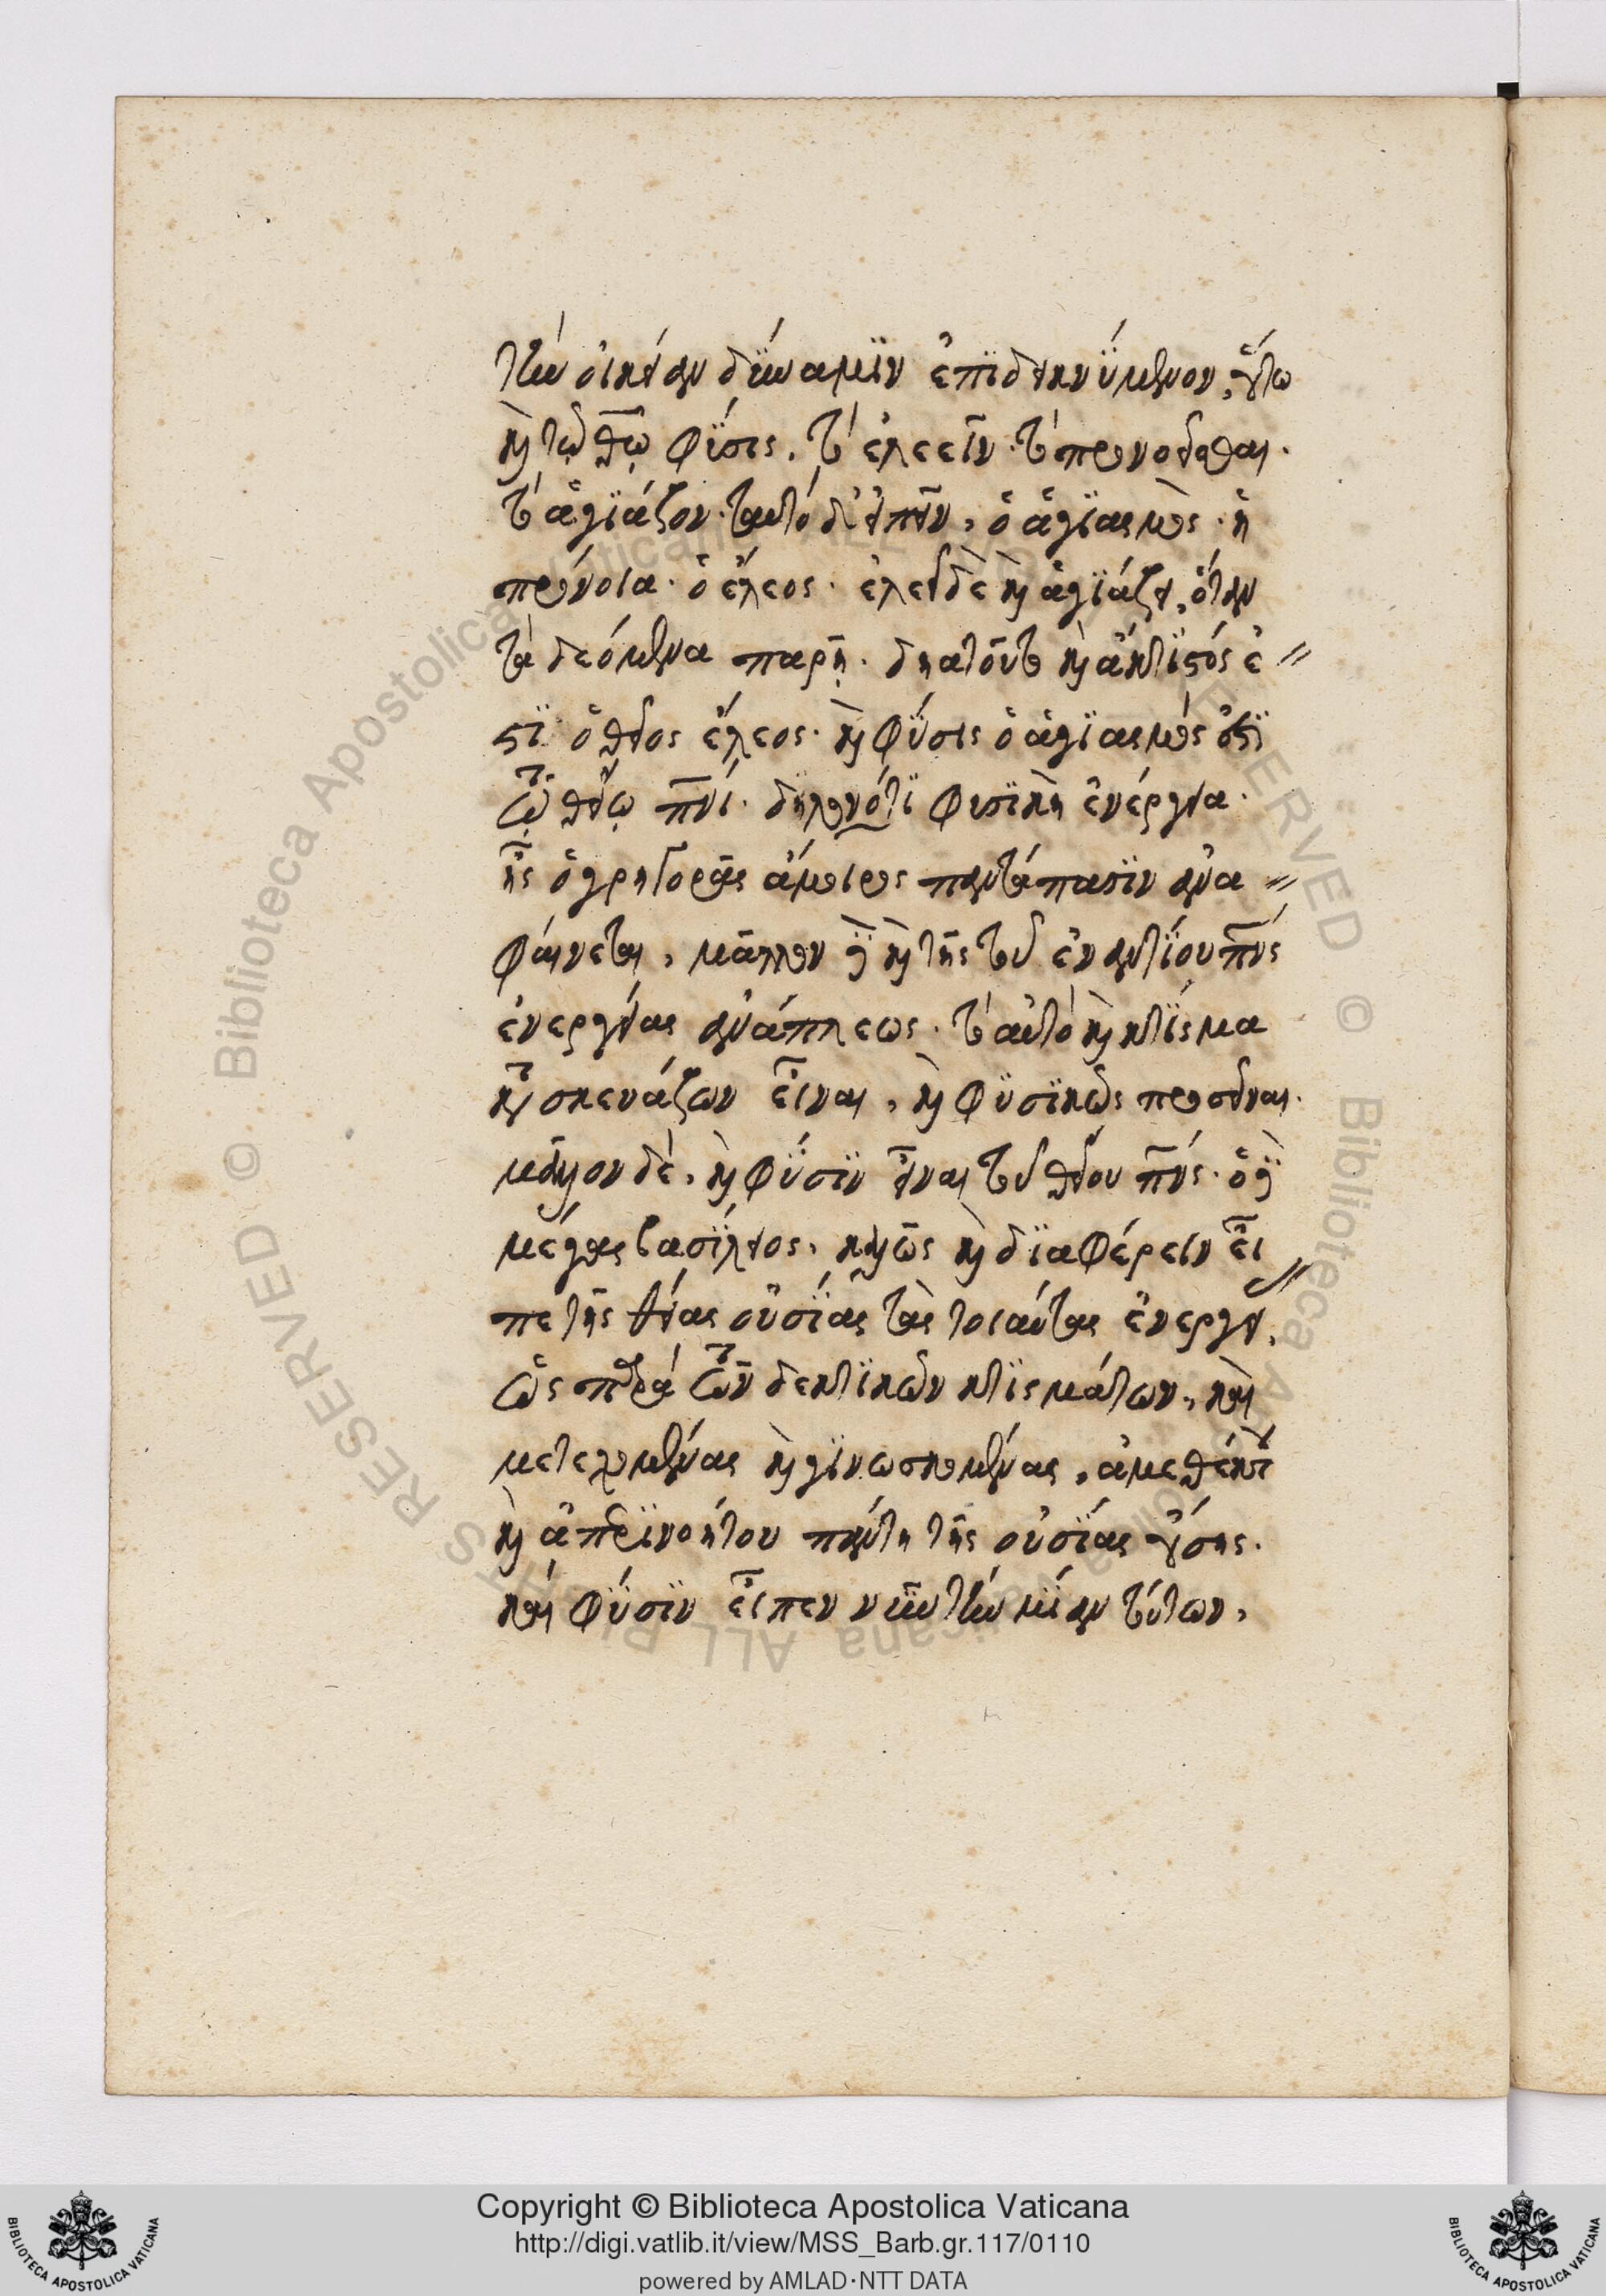 τὴν οἰκείαν δύναμιν ἐπιδεικνύμενον, οὕτω
καὶ τῷ θῶ φύσις. τὸ ἐλεεῖν· τὸ προνοεῖσθαι·
τὸ ἁγιάζον· ταυτὸ δ' εἰπεῖν, ὁ ἁγιασμὸς· ἡ
πρόνοια· ὁ ἔλεος· ἐλεεῖ δὲ καὶ ἁγιάζει, ὅταν
τὰ δεόμενα παρῇ. καὶ ἄκτιστός ἐ
στι ὁ θεῖος ἔλεος· καὶ φύσις ὁ ἁγιασμός ἐστι
τῷ θείῳ πνι· δηλονότι φυσικὴ ἐνέργεια·
ἧς ὁ γρηγορᾶς ἄμοιρος παντάπασιν ἀνα
φαίνεται, μᾶλλον δὲ καὶ τῆς τοῦ ἐναντίου πνς
ἐνεργείας ἀνάπλεως· τὸ αὐτὸ καὶ κτίσμα
κατασκευάζων εἶναι, καὶ φυσικῶς προσεῖναι·
μᾶλλον δὲ, καὶ φύσιν εἶναι τοῦ θείου πνς· ὁ δὲ
μέγας βασίλειος, καλῶς καὶ διαφέρειν εἶ
πε τῆς θείας οὐσίας τὰς τοιαύτας ἐνεργεί,
ὡς παρὰ τῶν δεκτικῶν κτισμάτων, καὶ
μετεχομένας καὶ γινωσκομένας, ἀμεθέκτ
καὶ ἀπερινοήτου πάντη τῆς οὐσίας οὔσης·
καὶ φύσιν εἶπεν νῦν τὴν μίαν τούτων,
Copyright © Biblioteca Apostolica Vaticana
http://digi.vatlib.it/view/MSS_Barb.gr.117/0110
powered by AMLAD·NTT DATA
BIBLIOTECA APOSTOLICA VATICANA
BIBLIOTECA APOSTOLICA VATICANA